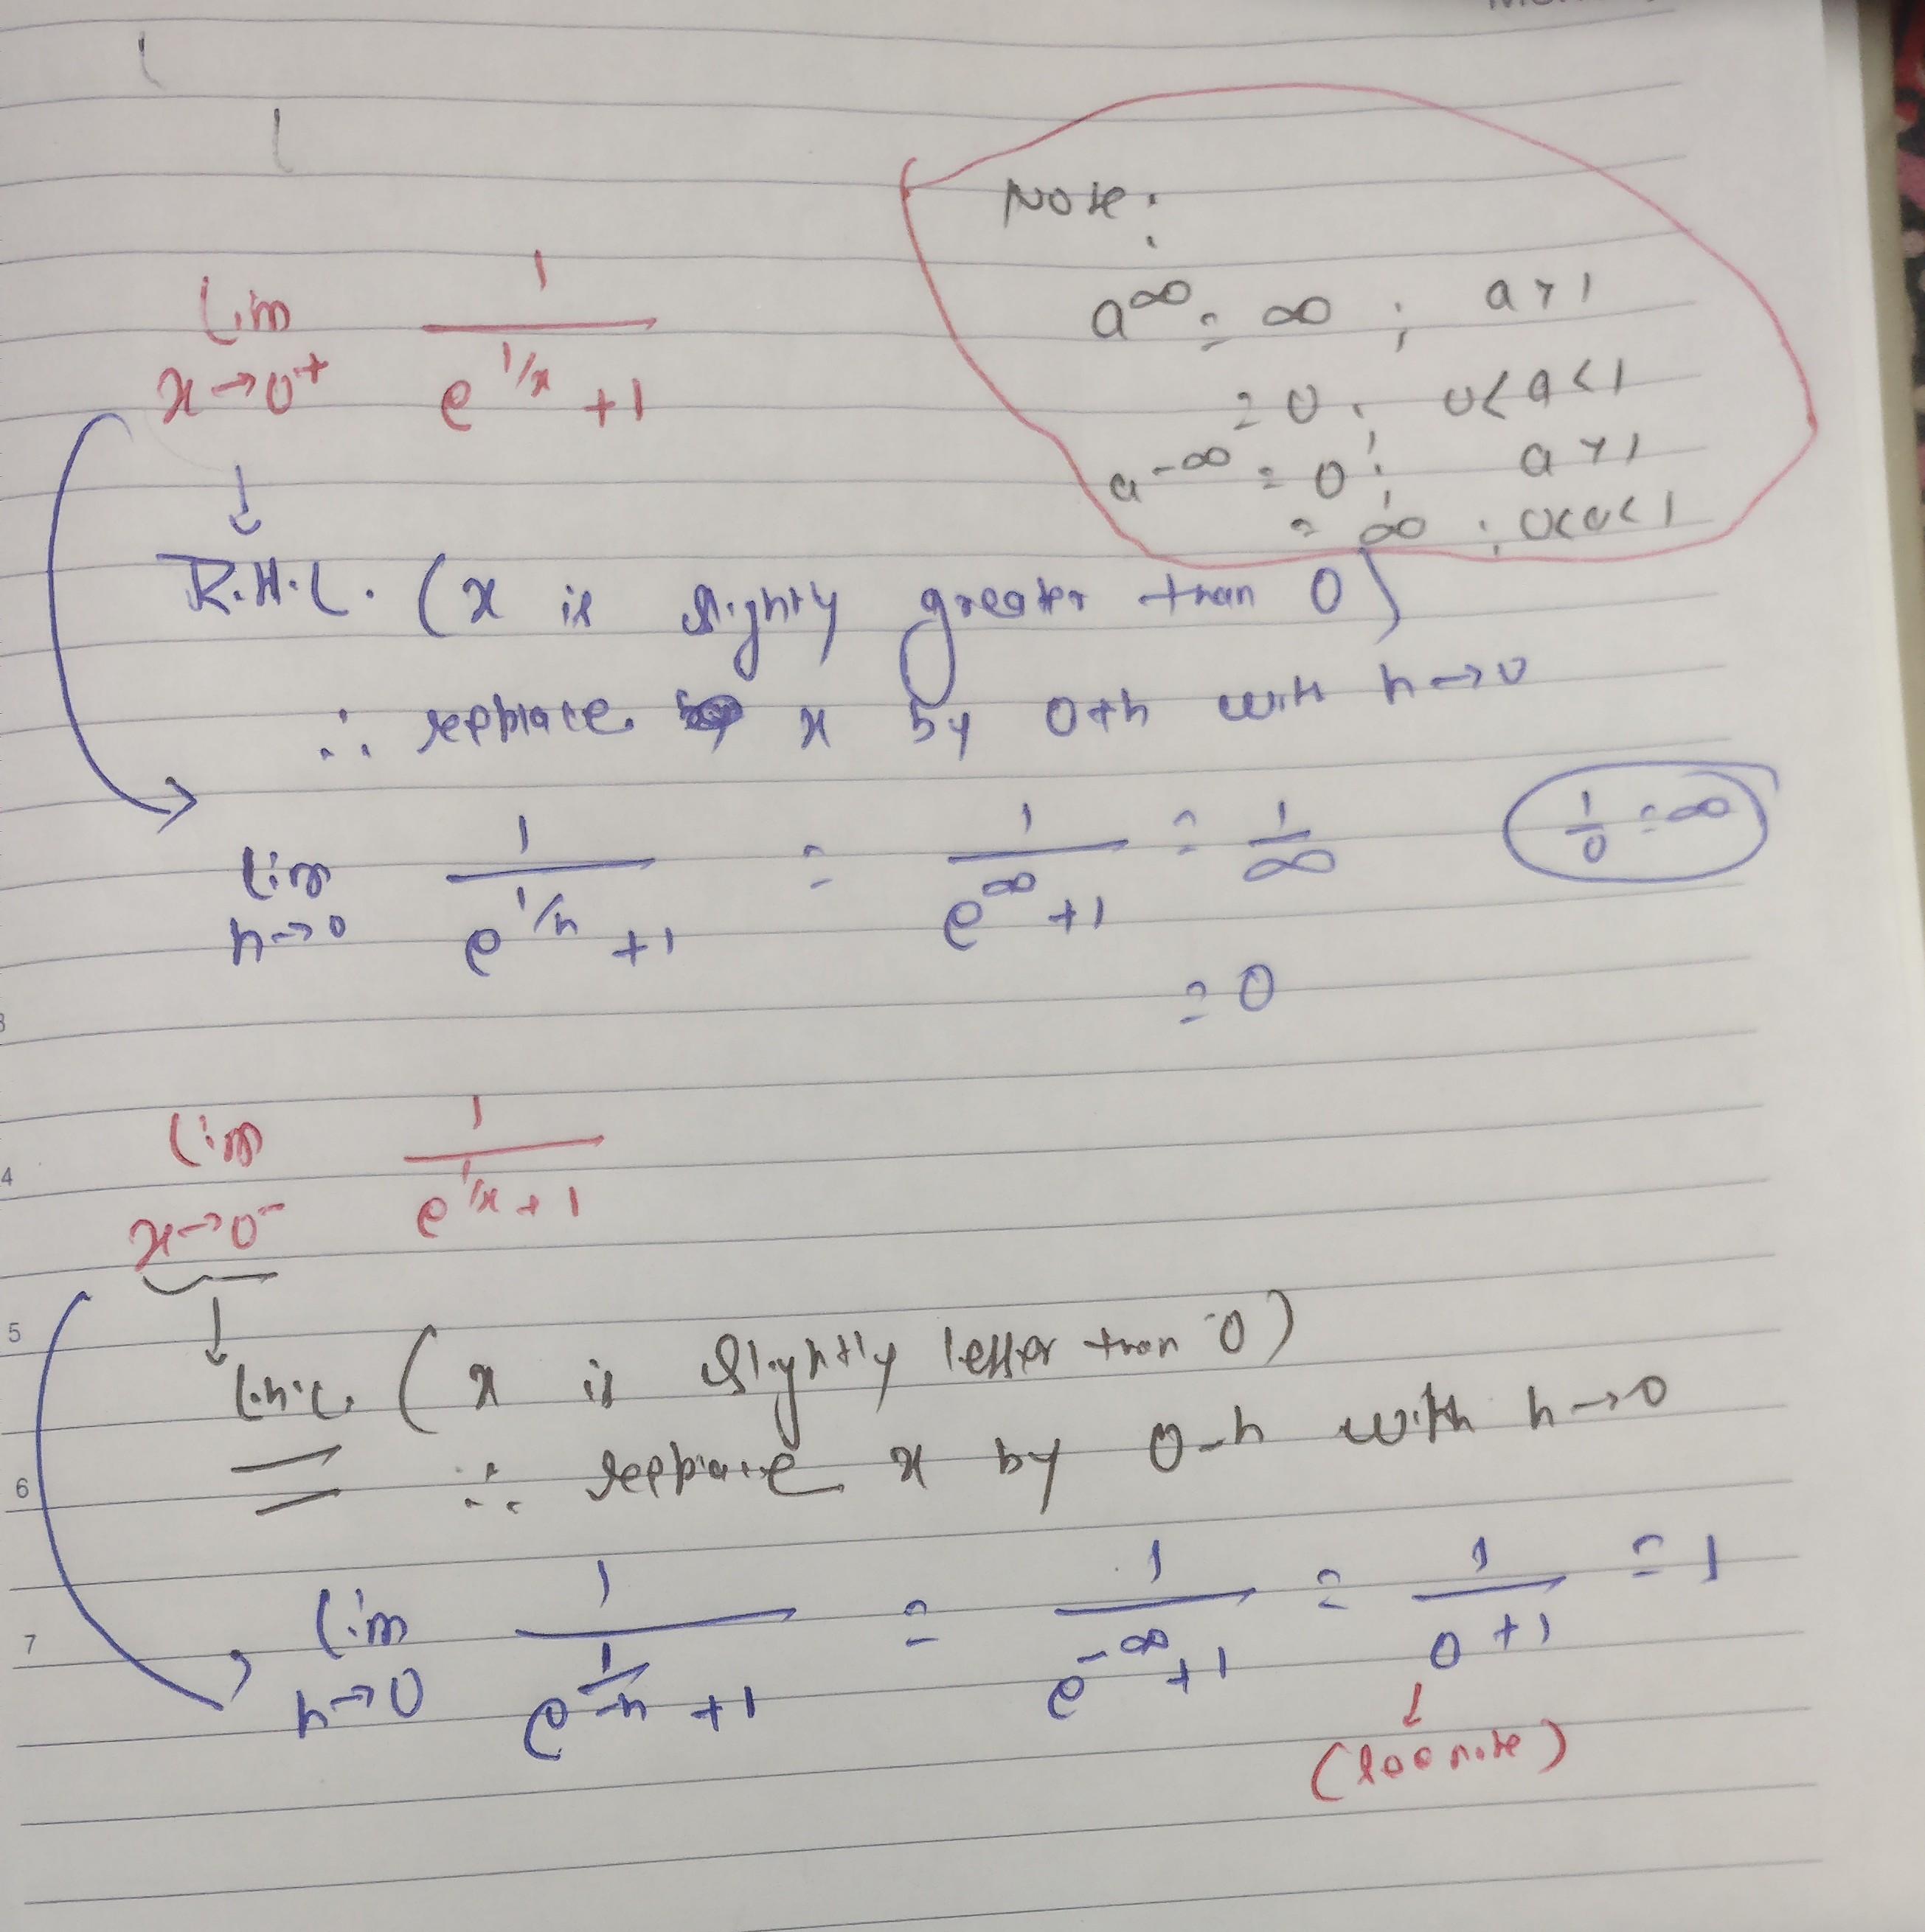 Note:
a^∞ = ∞ ; a > 1
= 0 ; 0 < a < 1
a^-∞ = 0 ; a > 1
= ∞ ; 0 < a < 1
lim x→0⁺ 1/(e^(1/x) + 1)
R.H.L. (x is slightly greater than 0)
∴ replace x by 0+h with h→0
lim h→0 1/(e^(1/h) + 1) = 1/(e^∞ + 1) = 1/∞
1/0 = ∞
= 0
3
lim x→0⁻ 1/(e^(1/x) + 1)
4
5
L.H.L. (x is slightly lesser than 0)
6
∴ replace x by 0-h with h→0
7
lim h→0 1/(e^(1/-h) + 1) = 1/(e^-∞ + 1) = 1/(0 + 1) = 1
(see note)